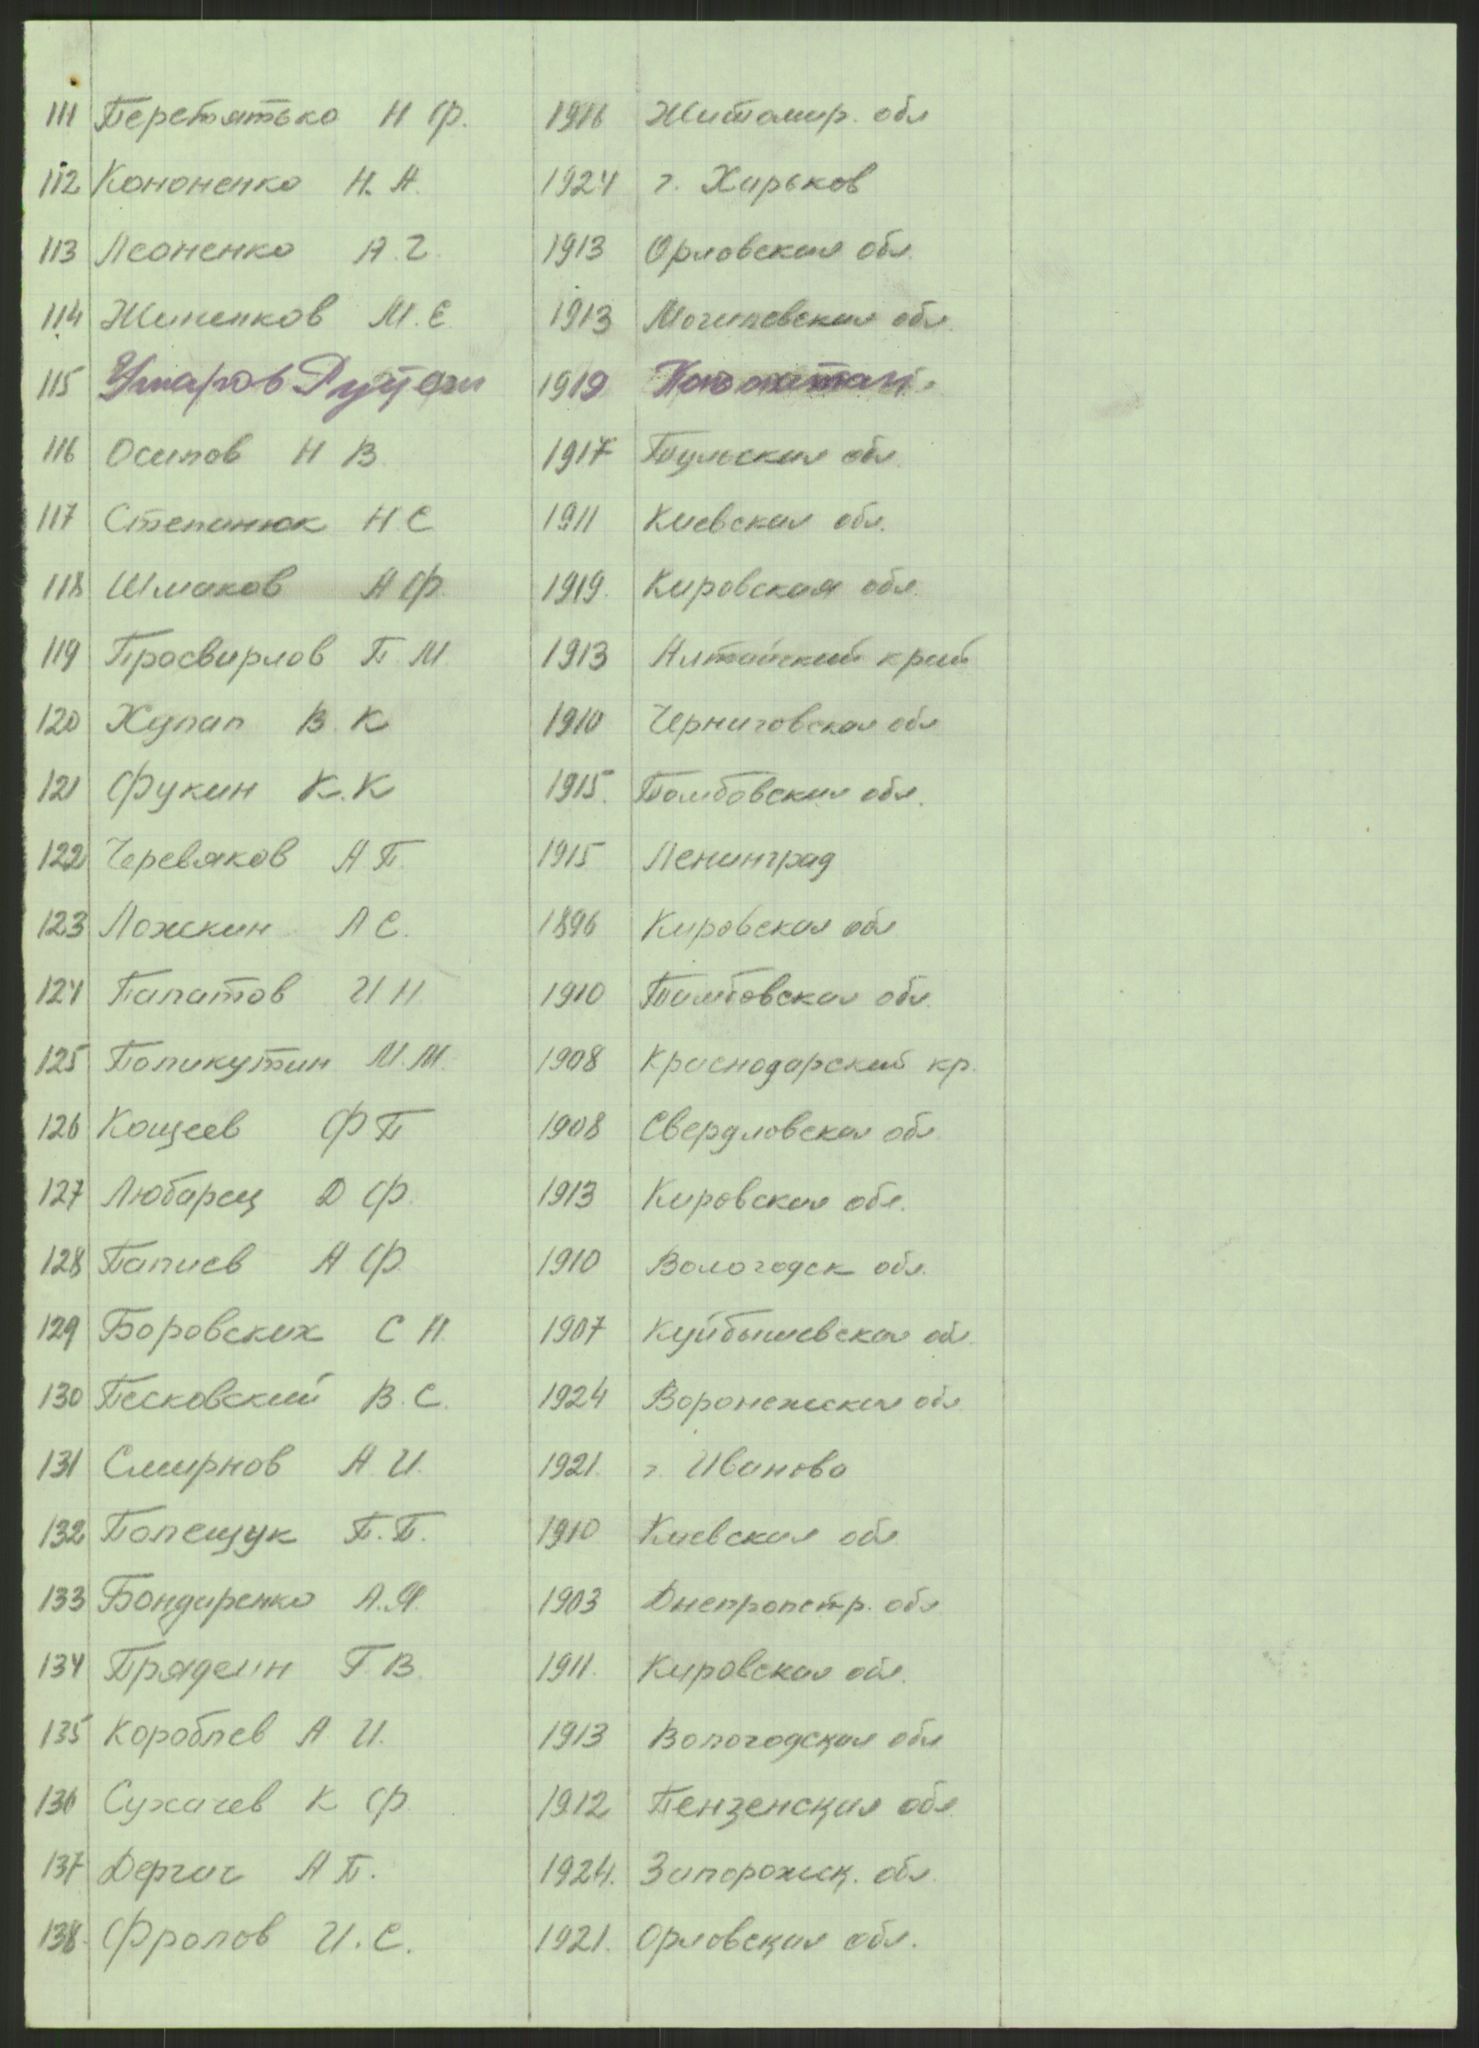 111 Перетятько Н Ф. 1916 Житомир. обл
112 Кононенко Н. А. 1924 г. Харьков
113 Леоненко А. Г. 1913 Орловская обл.
114 Жиленков М. Е. 1913 Могилевская обл.
115 Умаров 1919
116 Осипов Н В. 1917 Тульская обл.
117 Степанюк Н С 1911 Киевская обл.
118 Шмаков А Ф. 1919. Кировская обл.
119 Просвирлов П. М. 1913 Алтайский край
120 Хулап В. К 1910 Черниговская обл
121 Фукин К. К 1915. Томбовская обл.
122 Черевяков А П. 1915 Ленинград
123 Ложкин Л С. 1896 Кировская обл
124 Палатов И Н. 1910 Тамбовская обл.
125 Поликутин М. М. 1908 Краснодарский кр.
126 Кощеев Ф П 1908 Свердловская обл
127 Любарец Д Ф. 1913 Кировская обл.
128 Папиев А Ф. 1910 Вологодск обл.
129 Боровских С Н. 1907 Куйбышевская обл.
130 Песковский В. С. 1924 Воронежская обл
131 Смирнов А. И. 1921. г. Иваново
132 Полещук П. П. 1910 Киевская обл
133 Бондаренко А. Я. 1903 Днепропетр. обл
134 Прядеин Г. В. 1911. Кировская обл.
135 Короблев А. И. 1913 Вологодская обл
136 Сухачев К Ф. 1912 Пензенская обл.
137 Дергач А П. 1924. Запорожск. обл.
138. Фролов И. С. 1921. Орловская обл.